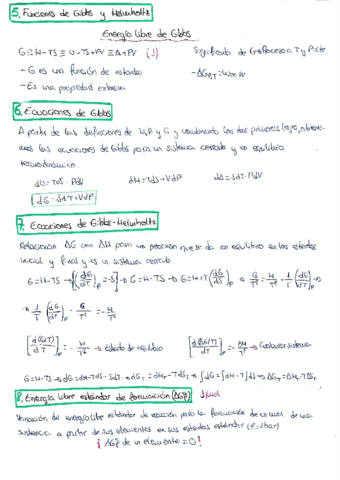 5. Funciones de Gibbs y Helmholtz
Energía libre de Gibbs
G ≡ H-TS ≡ U-TS+PV ≡ A+PV (J)
Significado de G → Proceso a T y P cte
- G es una función de estado
- Es una propiedad extensiva
6. Ecuaciones de Gibbs
A partir de las definiciones de H, A y G y combinando los dos primeros
las ecuaciones de Gibbs para un sistema cerrado y en equilibrio
termodinámico.
dU = TdS - PdV dH = TdS + VdP dA = -SdT - PdV
dG = -SdT + VdP
7. Ecuaciones de Gibbs-Helmholtz
Relacionan ΔG con ΔH para un proceso que de en equilibrio en los estados
inicial y final y es un sistema cerrado.
G = H-TS → [(dG/dT)p = -S] → G = H-TS → G = H+T(dG/dT)p → G/T² = H/T² + 1/T (dG/dT)p →
→ 1/T (dG/dT)p - G/T² = -H/T²
[d(G/T)/dT]p = -H/T² → Estado de equilibrio [d(ΔG/T)/dT]p = -ΔH/T² → Cualquier sistema
G = H-TS → dG = dH-TdS-SdT → dG_T = dH_T-TdS_T → ∫dG = ∫dH-T∫dS → ΔG_T = ΔH_T-TΔS_T
8. Energía libre estándar de formación (ΔGºf) J/mol
Variación de energía libre estándar de reacción para la formación de un mol de una
sustancia a partir de sus elementos en sus estados estándar (P=1bar)
¡ ΔGºf de un elemento = 0 !